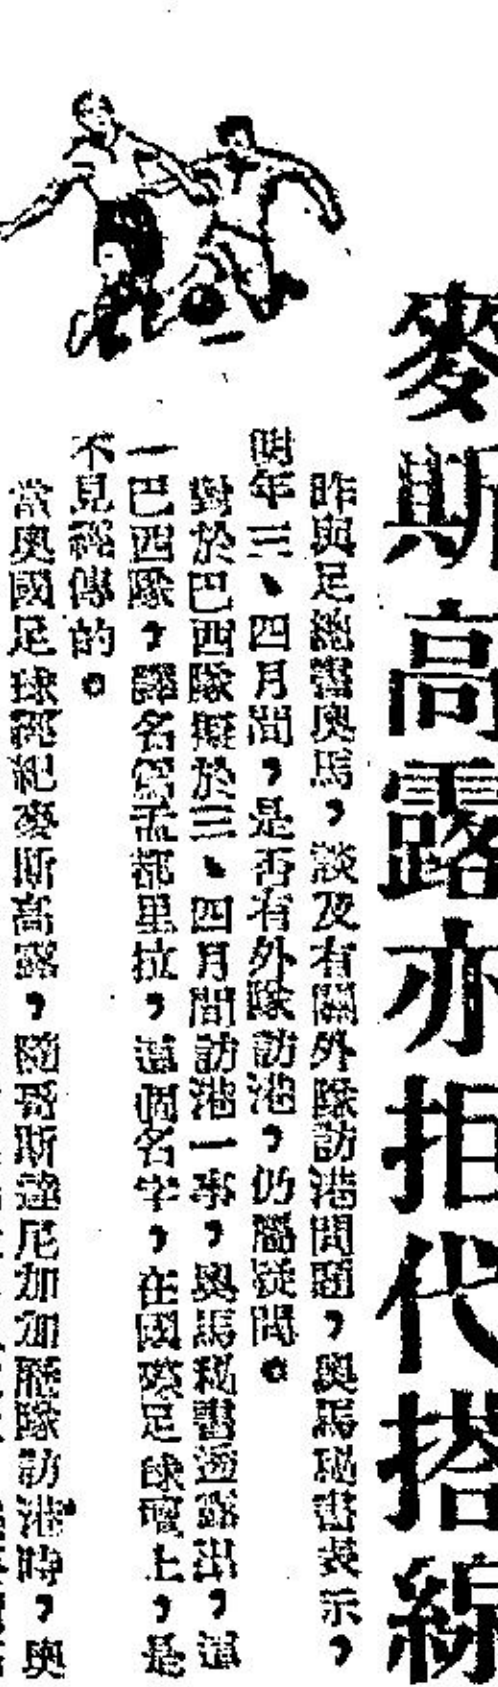 麥斯高露亦拒代搭線
昨與足總書奧馬，談及有關外隊訪港問題，奧馬秘書表示，
明年三、四月間，是否有外隊訪港，仍屬疑問。
對於巴西隊擬於三、四月間訪港一事，奧馬秘書透露出，這
一巴西隊，譯名為孟都里拉，這個名字，在國際足球壇上，是
不見經傳的。
當奧國足球經紀麥斯高露，隨哥斯達尼加加隊訪港時，奧